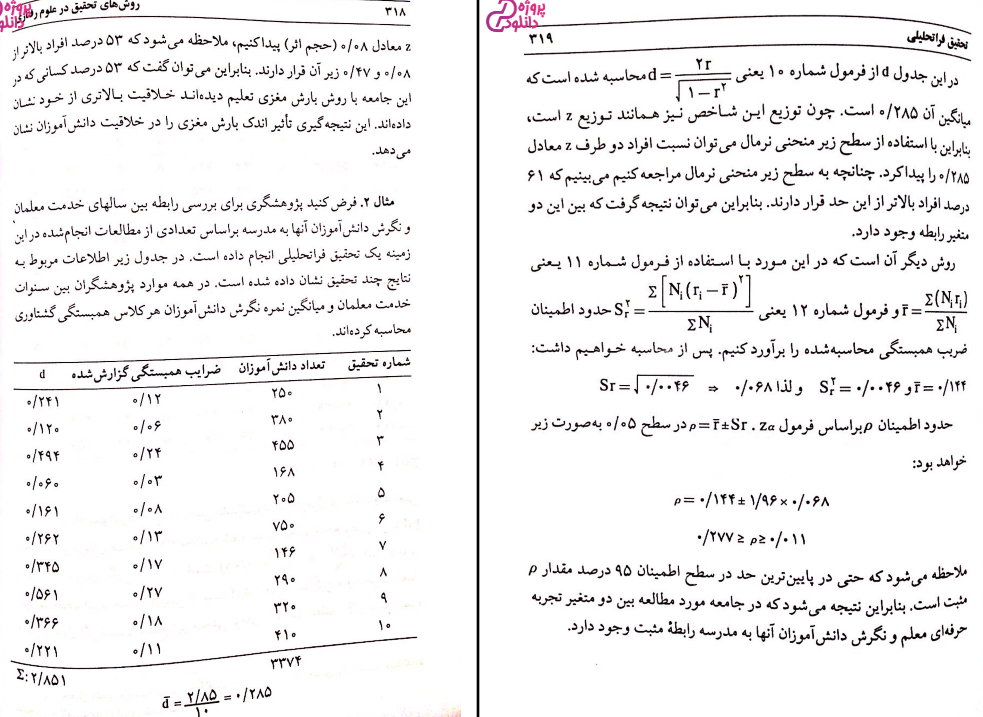 پروژه دانلود
۳۱۸
روش‌های تحقیق در علوم رفتاری
z معادل ۰/۰۸ (حجم اثر) پیدا کنیم، ملاحظه می‌شود که ۵۳ درصد افراد بالاتر از
۰/۰۸ و ۰/۴۷ زیر آن قرار دارند. بنابراین می‌توان گفت که ۵۳ درصد کسانی که در
این جامعه با روش بارش مغزی تعلیم دیده‌اند خلاقیت بالاتری از خود نشان
داده‌اند. این نتیجه‌گیری تأثیر اندک بارش مغزی را در خلاقیت دانش‌آموزان نشان
می‌دهد.
مثال ۲. فرض کنید پژوهشگری برای بررسی رابطه بین سالهای خدمت معلمان
و نگرش دانش‌آموزان آنها به مدرسه براساس تعدادی از مطالعات انجام‌شده در این
زمینه یک تحقیق فراتحلیلی انجام داده است. در جدول زیر اطلاعات مربوط به
نتایج چند تحقیق نشان داده شده است. در همه موارد پژوهشگران بین سنوات
خدمت معلمان و میانگین نمره نگرش دانش‌آموزان هر کلاس همبستگی گشتاوری
محاسبه کرده‌اند.
شماره تحقیق تعداد دانش‌آموزان ضرایب همبستگی گزارش‌شده d
۱ ۲۵۰ ۰/۱۲ ۰/۲۴۱
۲ ۳۸۰ ۰/۰۶ ۰/۱۲۰
۳ ۴۵۵ ۰/۲۴ ۰/۴۹۴
۴ ۱۶۸ ۰/۰۳ ۰/۰۶۰
۵ ۲۰۵ ۰/۰۸ ۰/۱۶۱
۶ ۷۵۰ ۰/۱۳ ۰/۲۶۲
۷ ۱۴۶ ۰/۱۷ ۰/۳۴۵
۸ ۲۹۰ ۰/۲۷ ۰/۵۶۱
۹ ۳۲۰ ۰/۱۸ ۰/۳۶۶
۱۰ ۴۱۰ ۰/۱۱ ۰/۲۲۱
۳۳۷۴ Σ:۲/۸۵۱
d̄ = ۲/۸۵ / ۱۰ = ۰/۲۸۵
پروژه دانلود
۳۱۹
تحقیق فراتحلیلی
در این جدول d از فرمول شماره ۱۰ یعنی d = ۲r / √(۱ − r²) محاسبه شده است که
میانگین آن ۰/۲۸۵ است. چون توزیع این شاخص نیز همانند توزیع z است،
بنابراین با استفاده از سطح زیر منحنی نرمال می‌توان نسبت افراد دو طرف z معادل
۰/۲۸۵ را پیدا کرد. چنانچه به سطح زیر منحنی نرمال مراجعه کنیم می‌بینیم که ۶۱
درصد افراد بالاتر از این حد قرار دارند. بنابراین می‌توان نتیجه گرفت که بین این دو
متغیر رابطه وجود دارد.
روش دیگر آن است که در این مورد با استفاده از فرمول شماره ۱۱ یعنی
r̄ = Σ(Nᵢrᵢ) / ΣNᵢ و فرمول شماره ۱۲ یعنی Sᵣ² = Σ[Nᵢ(rᵢ − r̄)²] / ΣNᵢ حدود اطمینان
ضریب همبستگی محاسبه‌شده را برآورد کنیم. پس از محاسبه خواهیم داشت:
r̄ = ۰/۱۴۴ و Sᵣ² = ۰/۰۰۴۶ و لذا ۰/۰۶۸ ⇒ Sr = √۰/۰۰۴۶
حدود اطمینان ρ براساس فرمول ρ = r̄ ± Sr . zα در سطح ۰/۰۵ به‌صورت زیر
خواهد بود:
ρ = ۰/۱۴۴ ± ۱/۹۶ × ۰/۰۶۸
۰/۲۷۷ ≥ ρ ≥ ۰/۰۱۱
ملاحظه می‌شود که حتی در پایین‌ترین حد در سطح اطمینان ۹۵ درصد مقدار ρ
مثبت است. بنابراین نتیجه می‌شود که در جامعه مورد مطالعه بین دو متغیر تجربه
حرفه‌ای معلم و نگرش دانش‌آموزان آنها به مدرسه رابطهٔ مثبت وجود دارد.